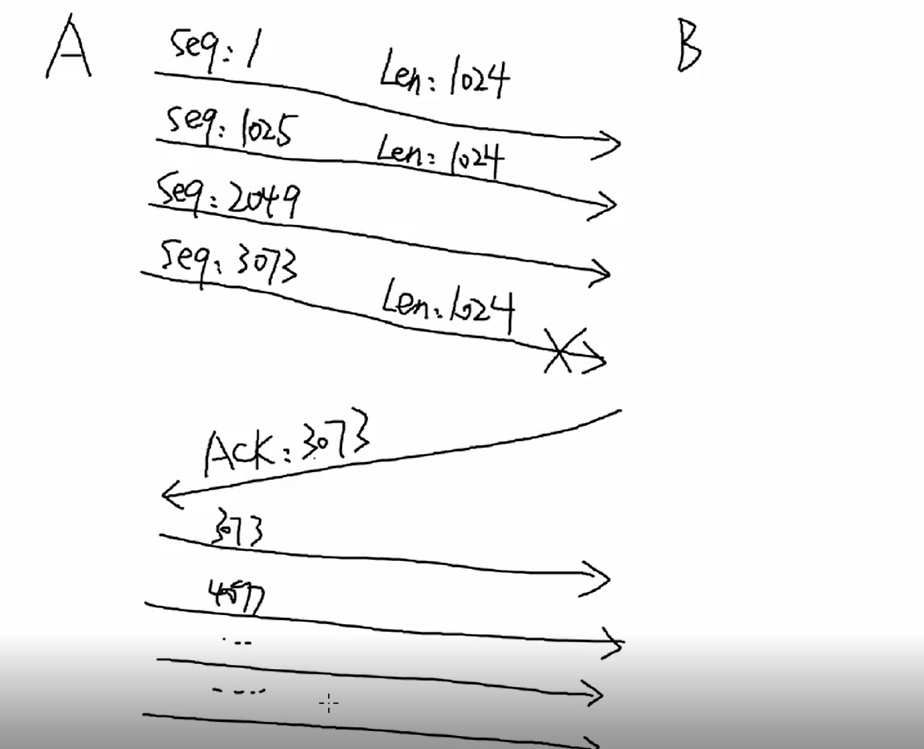 A
B
Seq: 1
Len: 1024
Seq: 1025
Len: 1024
Seq: 2049
Seq: 3073
Len: 1024
Ack: 3073
3073
...
....